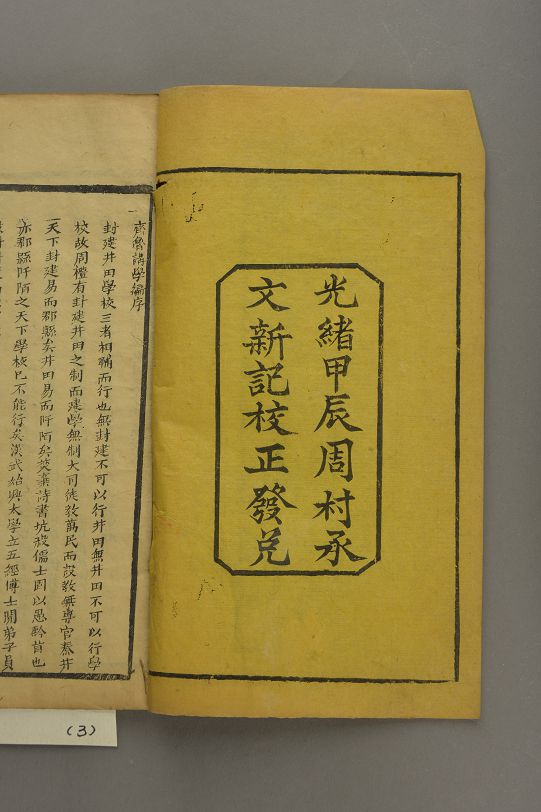 光緒甲辰周村承
文新記校正發兑
齊魯講學編序
封建井田學校三者相輔而行也無封建不可以行井田無井田不可以行學
校故周禮有封建井田之制而建學無制大司徒敎萬民而設敎無專官秦幷
天下封建易而郡縣矣井田易而阡陌矣焚棄詩書坑殺儒士固以愚黔首也
亦郡縣阡陌之天下學校已不能行矣漢武始興太學立五經博士開弟子員
(3)